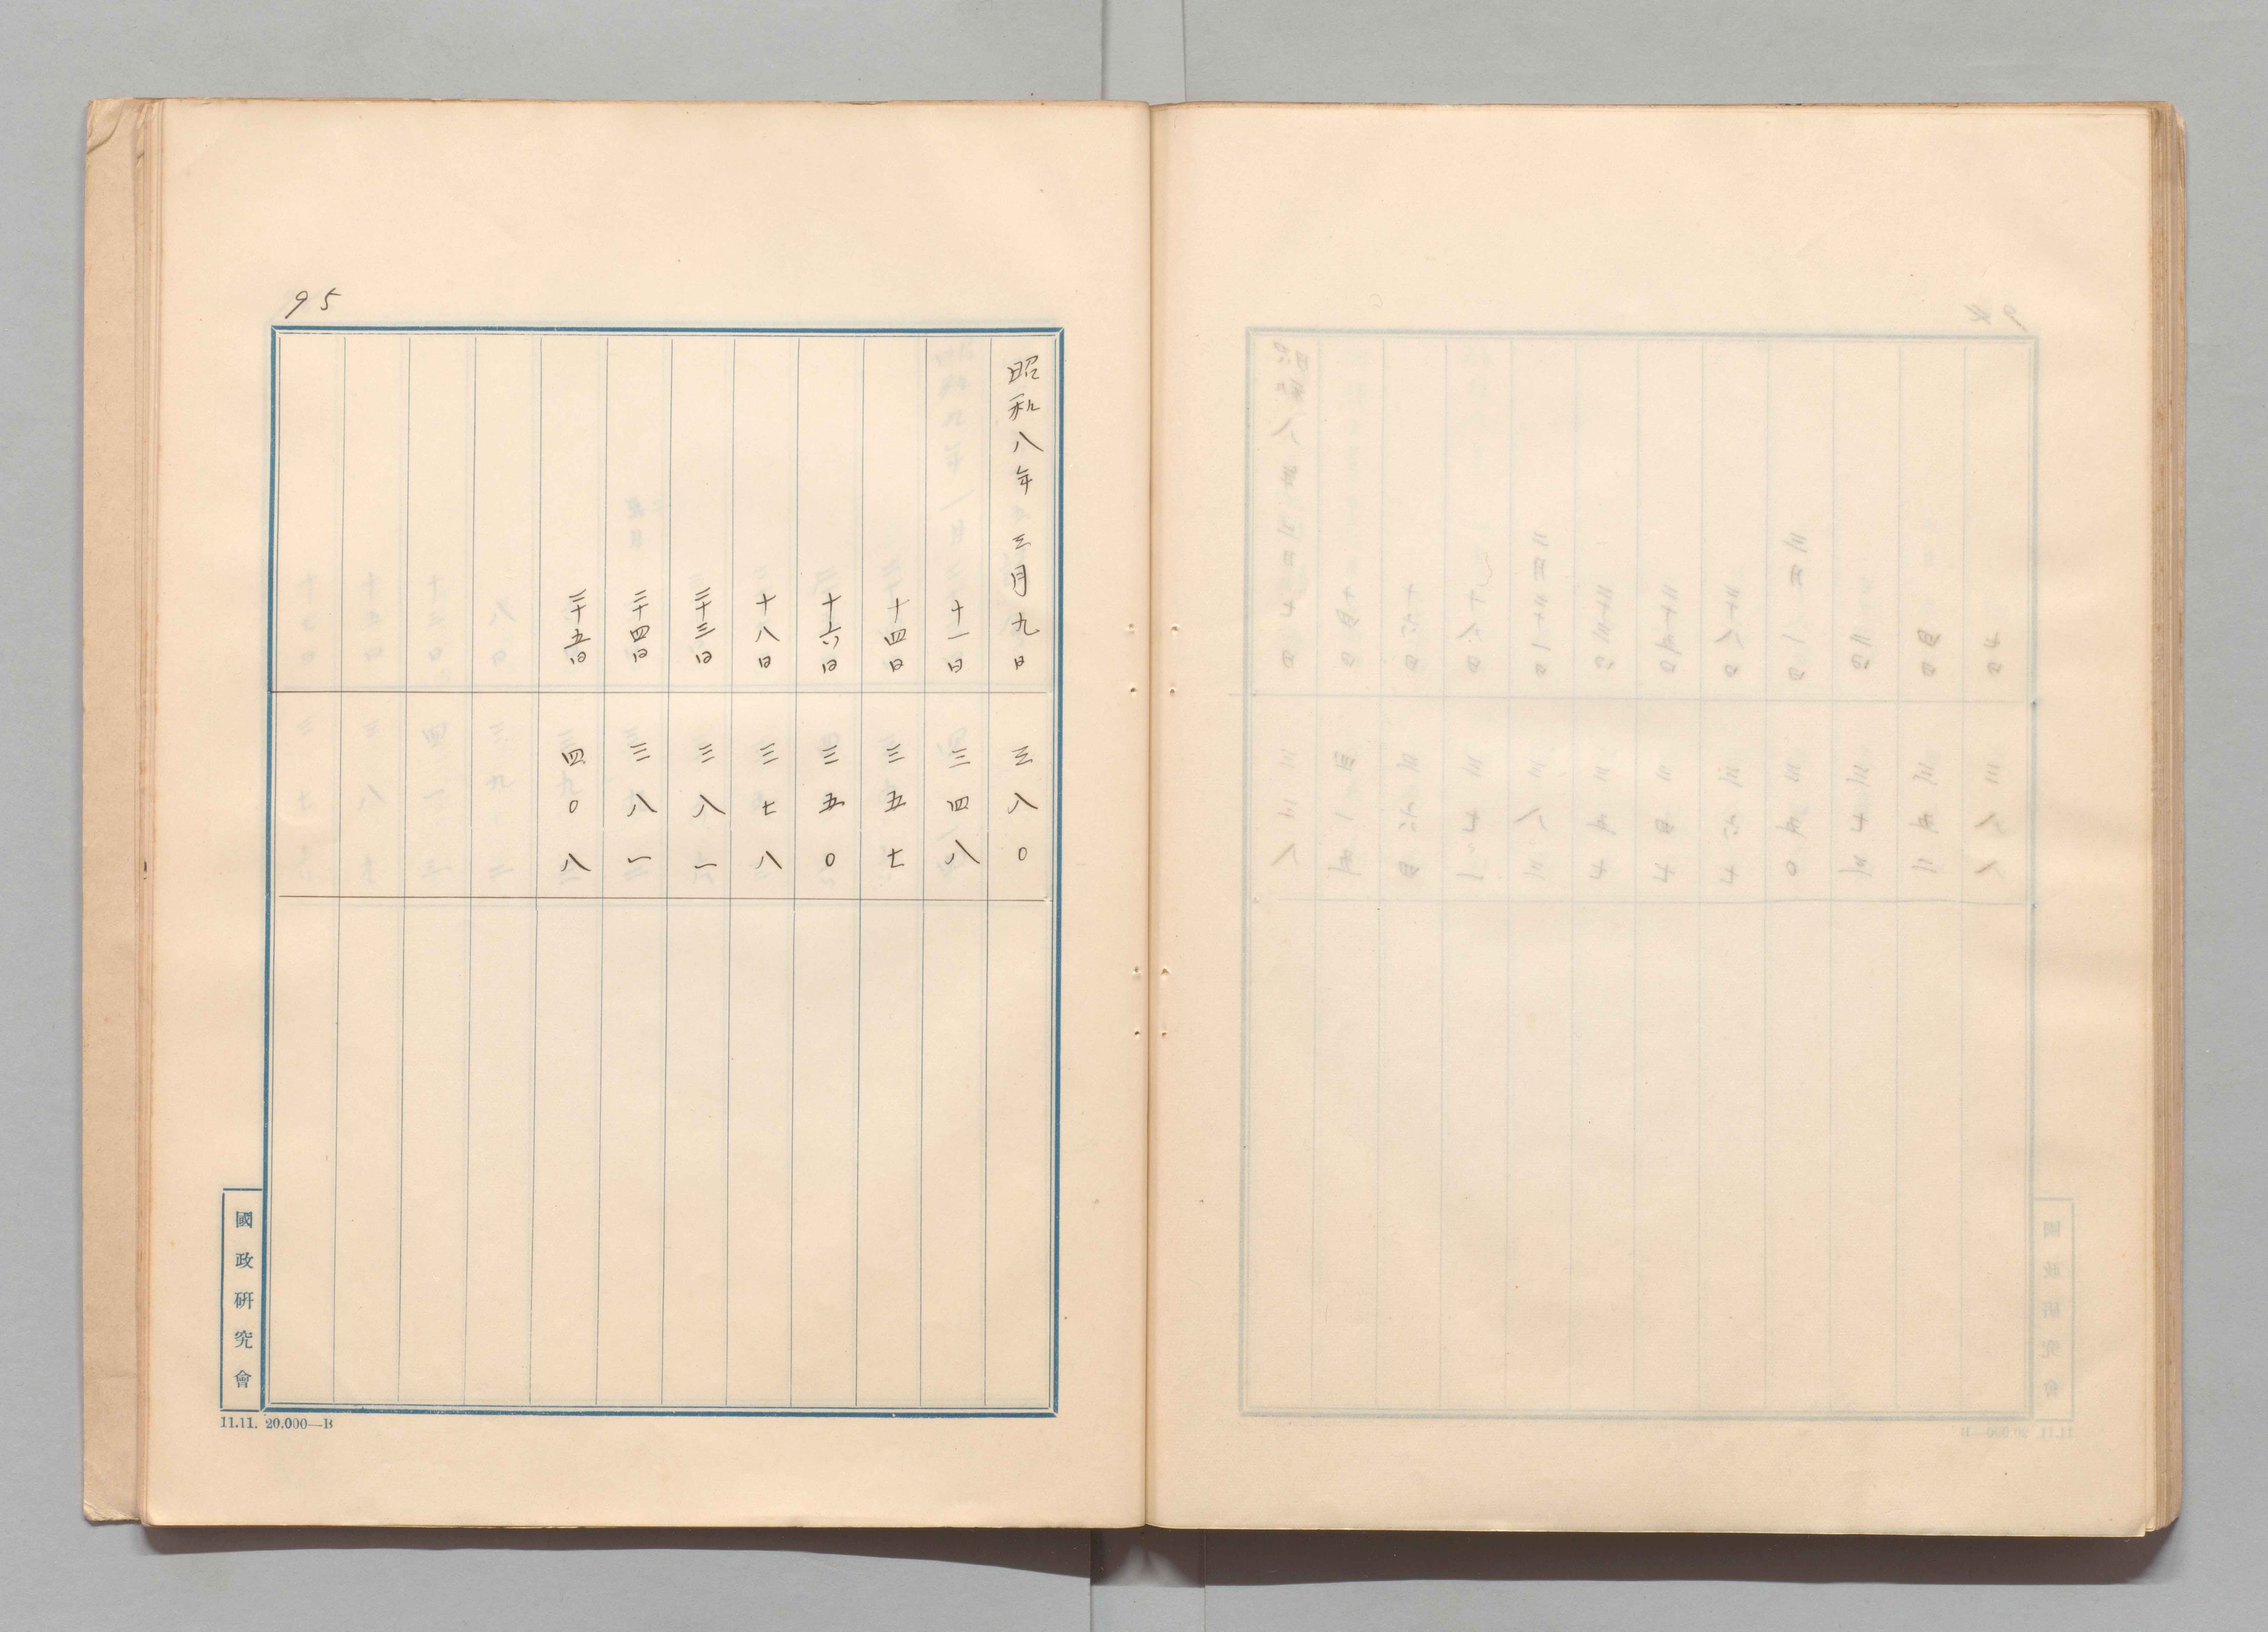 95
昭和八年三月九日 三八〇
十一日 三四八
十四日 三五七
十六日 三五〇
十八日 三七八
二十三日 三八一
二十四日 三八一
二十五日 四〇八
國政硏究會
11.11. 20.000—B